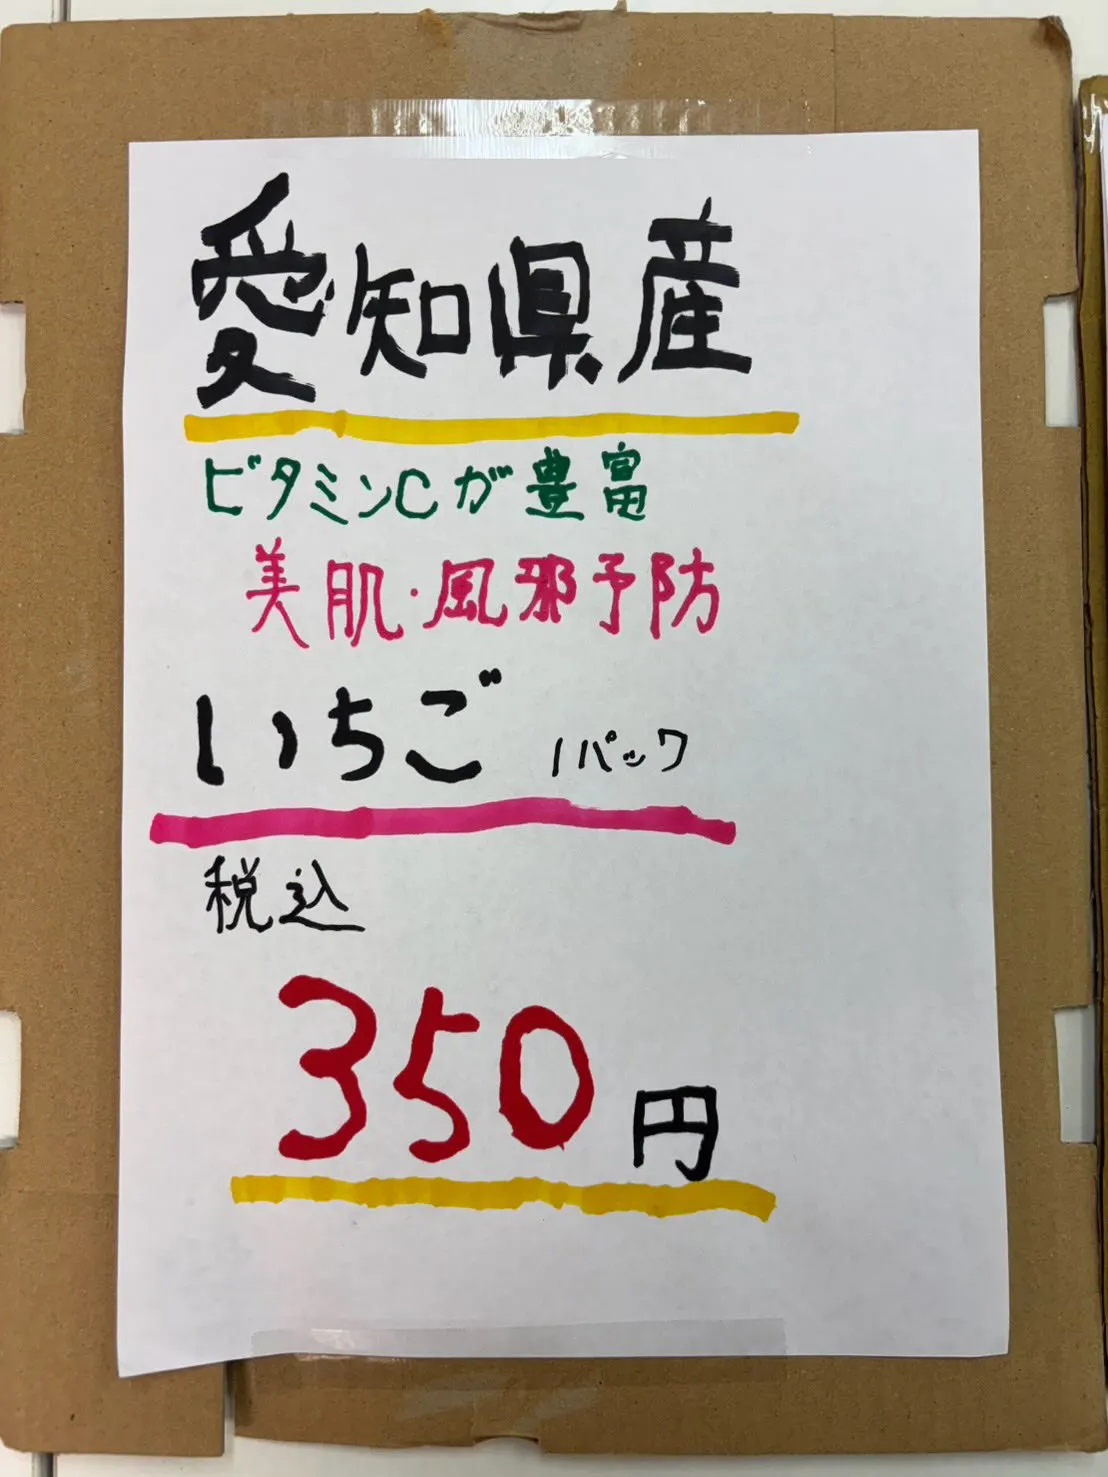 愛知県産
ビタミンCが豊富
美肌・風邪予防
いちご 1パック
税込
350円